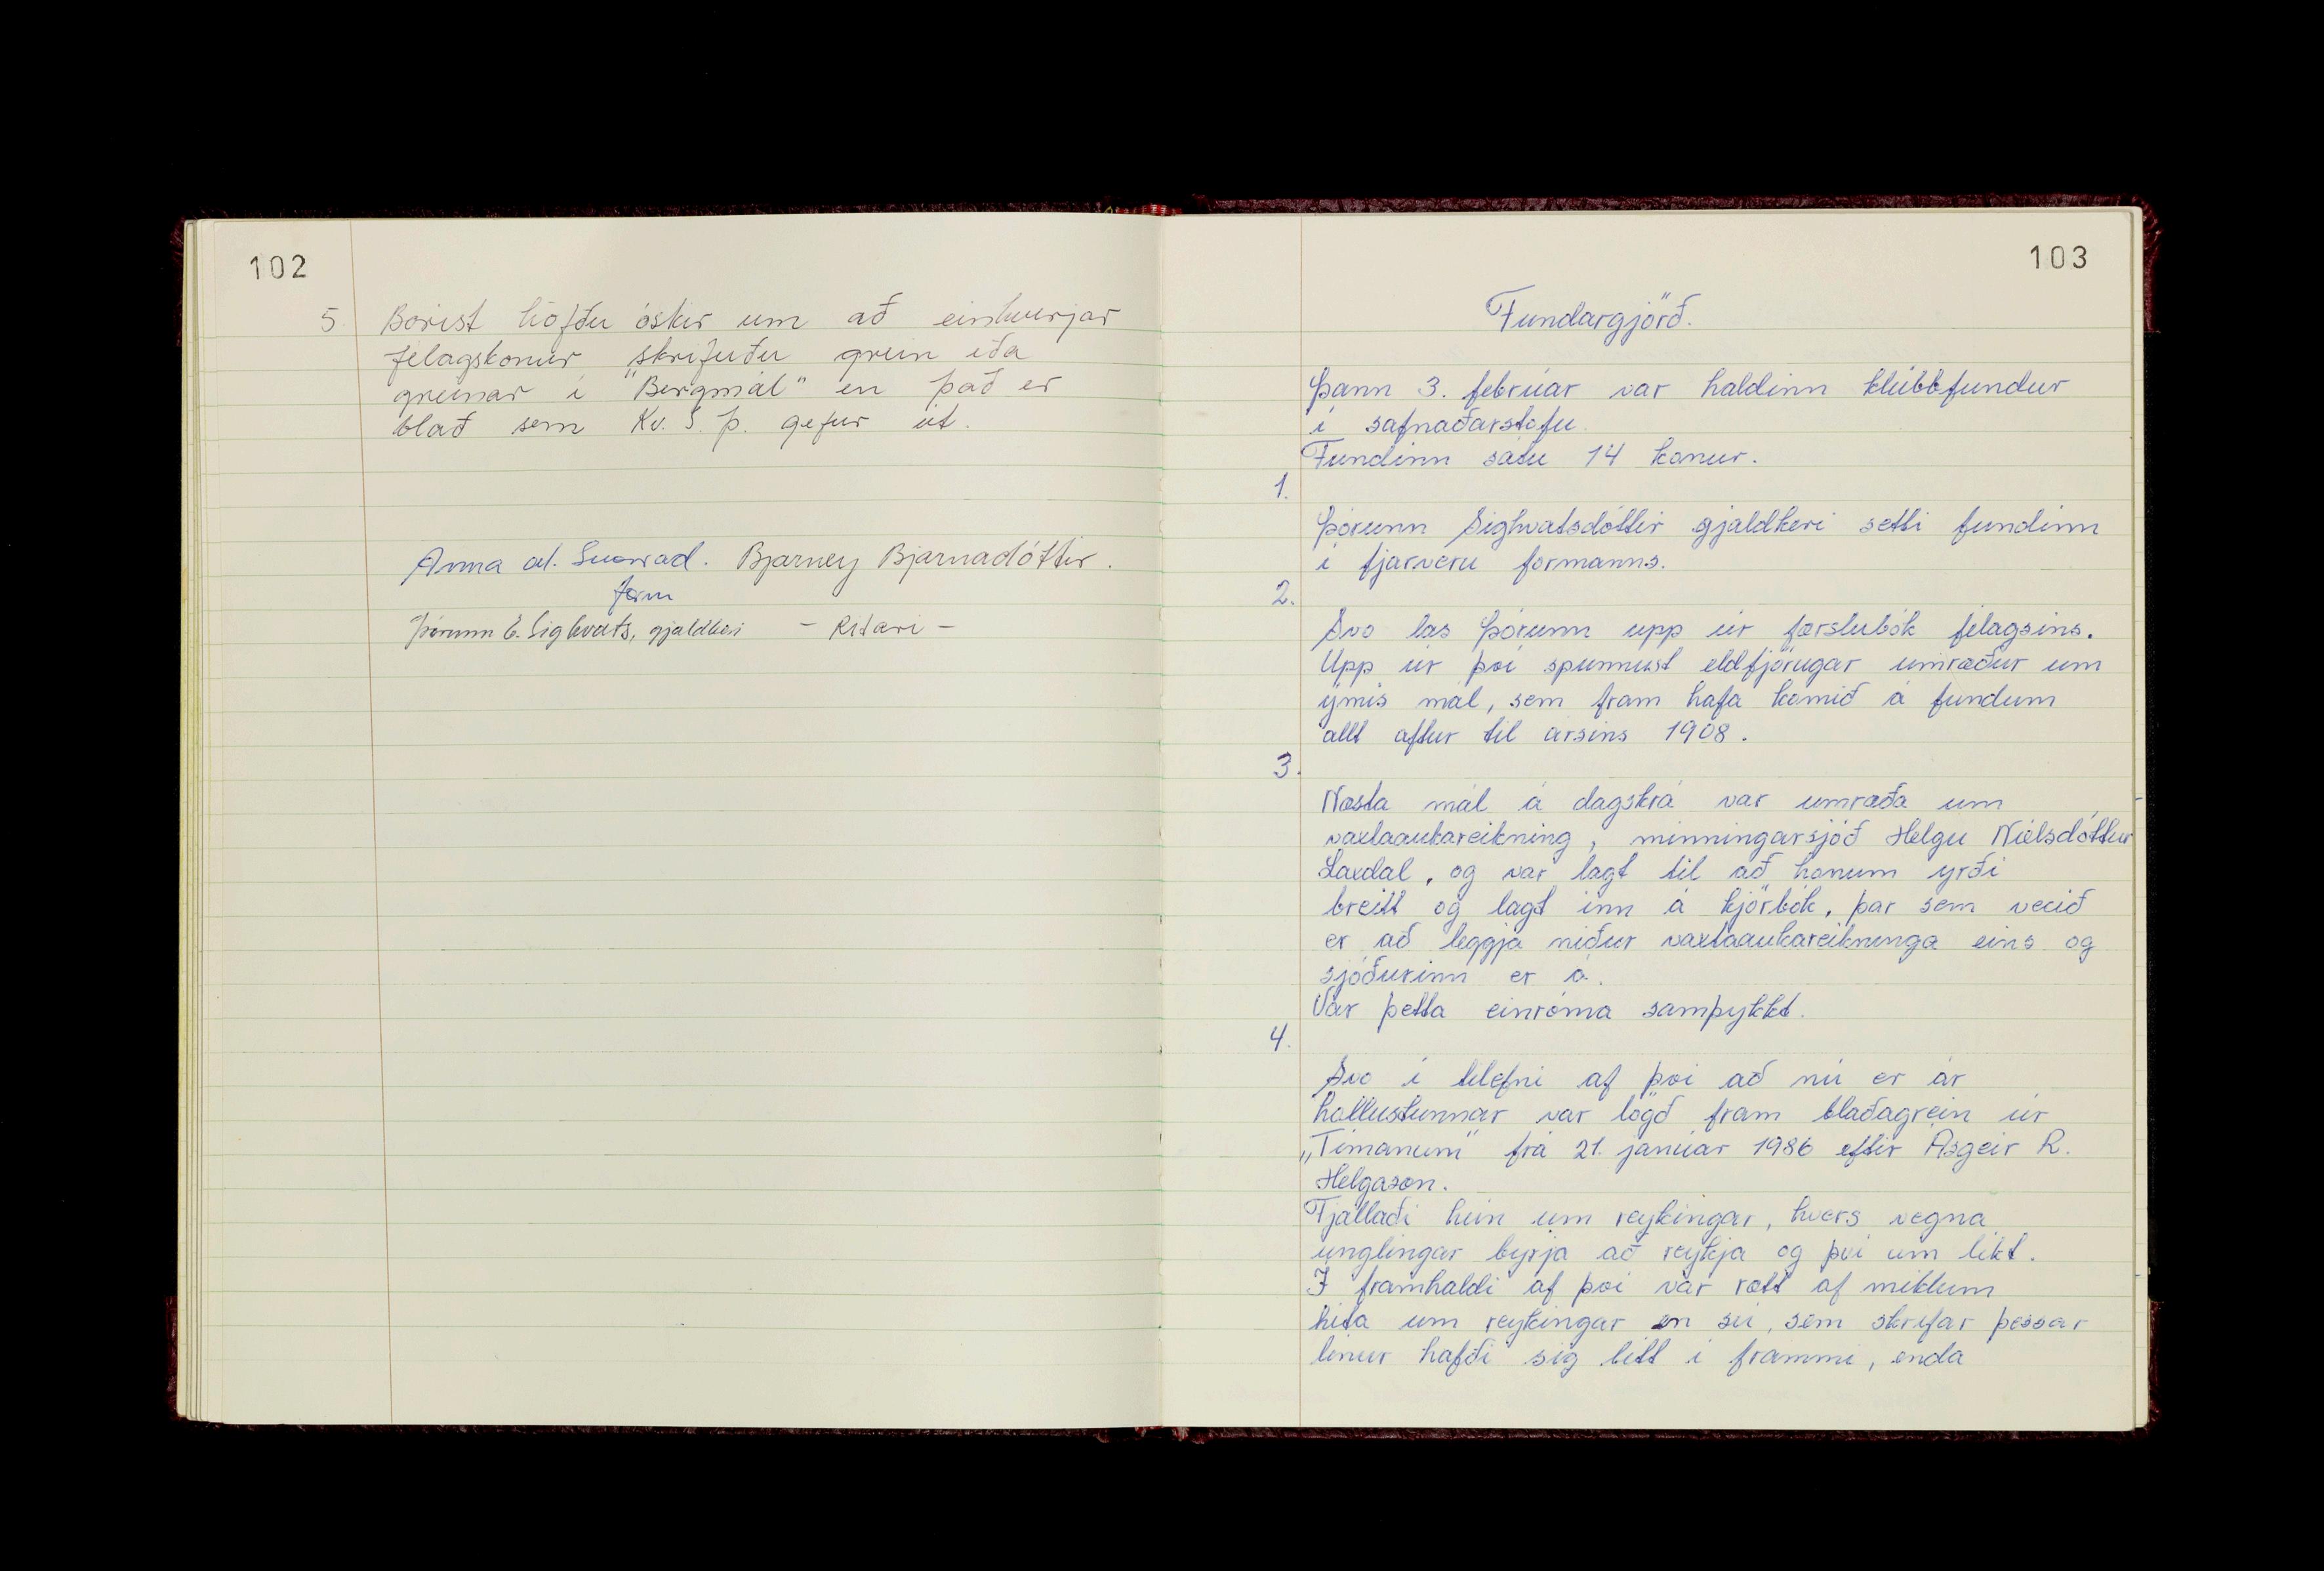 102
5. Borist höfðu óskir um að einhverjar
félagskonur skrifuðu grein eða
greinar í "Bergmál" en það er
blað sem Kv. S. Þ. gefur út.
Anna al. Snorrad. Bjarney Bjarnadóttir.
form
Þórunn E. Sighvats, gjaldkeri - Ritari -
103
Fundargjörð.
Þann 3. febrúar var haldinn klúbbfundur
í safnaðarstofu.
Fundinn sátu 14 konur.
1.
Þórunn Sighvatsdóttir gjaldkeri setti fundinn
í fjarveru formanns.
2.
Svo las Þórunn upp úr færslubók félagsins.
Upp úr því spunnust eldfjörugar umræður um
ýmis mál, sem fram hafa komið á fundum
allt aftur til ársins 1908.
3.
Næsta mál á dagskrá var umræða um
vaxtaaukareikning, minningarsjóð Helgu Níelsdóttur
Laxdal, og var lagt til að honum yrði
breitt og lagt inn á kjörbók, þar sem verið
er að leggja niður vaxtaaukareikninga eins og
sjóðurinn er á.
Var þetta einróma samþykkt.
4.
Svo í tilefni af því að nú er ár
hollustunnar var lögð fram blaðagrein úr
„Tímanum" frá 21. janúar 1986 eftir Ásgeir R.
Helgason.
Fjallaði hún um reykingar, hvers vegna
unglingar byrja að reykja og því um líkt.
Í framhaldi af því var rætt af miklum
hita um reykingar en sú, sem skrifar þessar
línur hafði sig lítt í frammi, enda